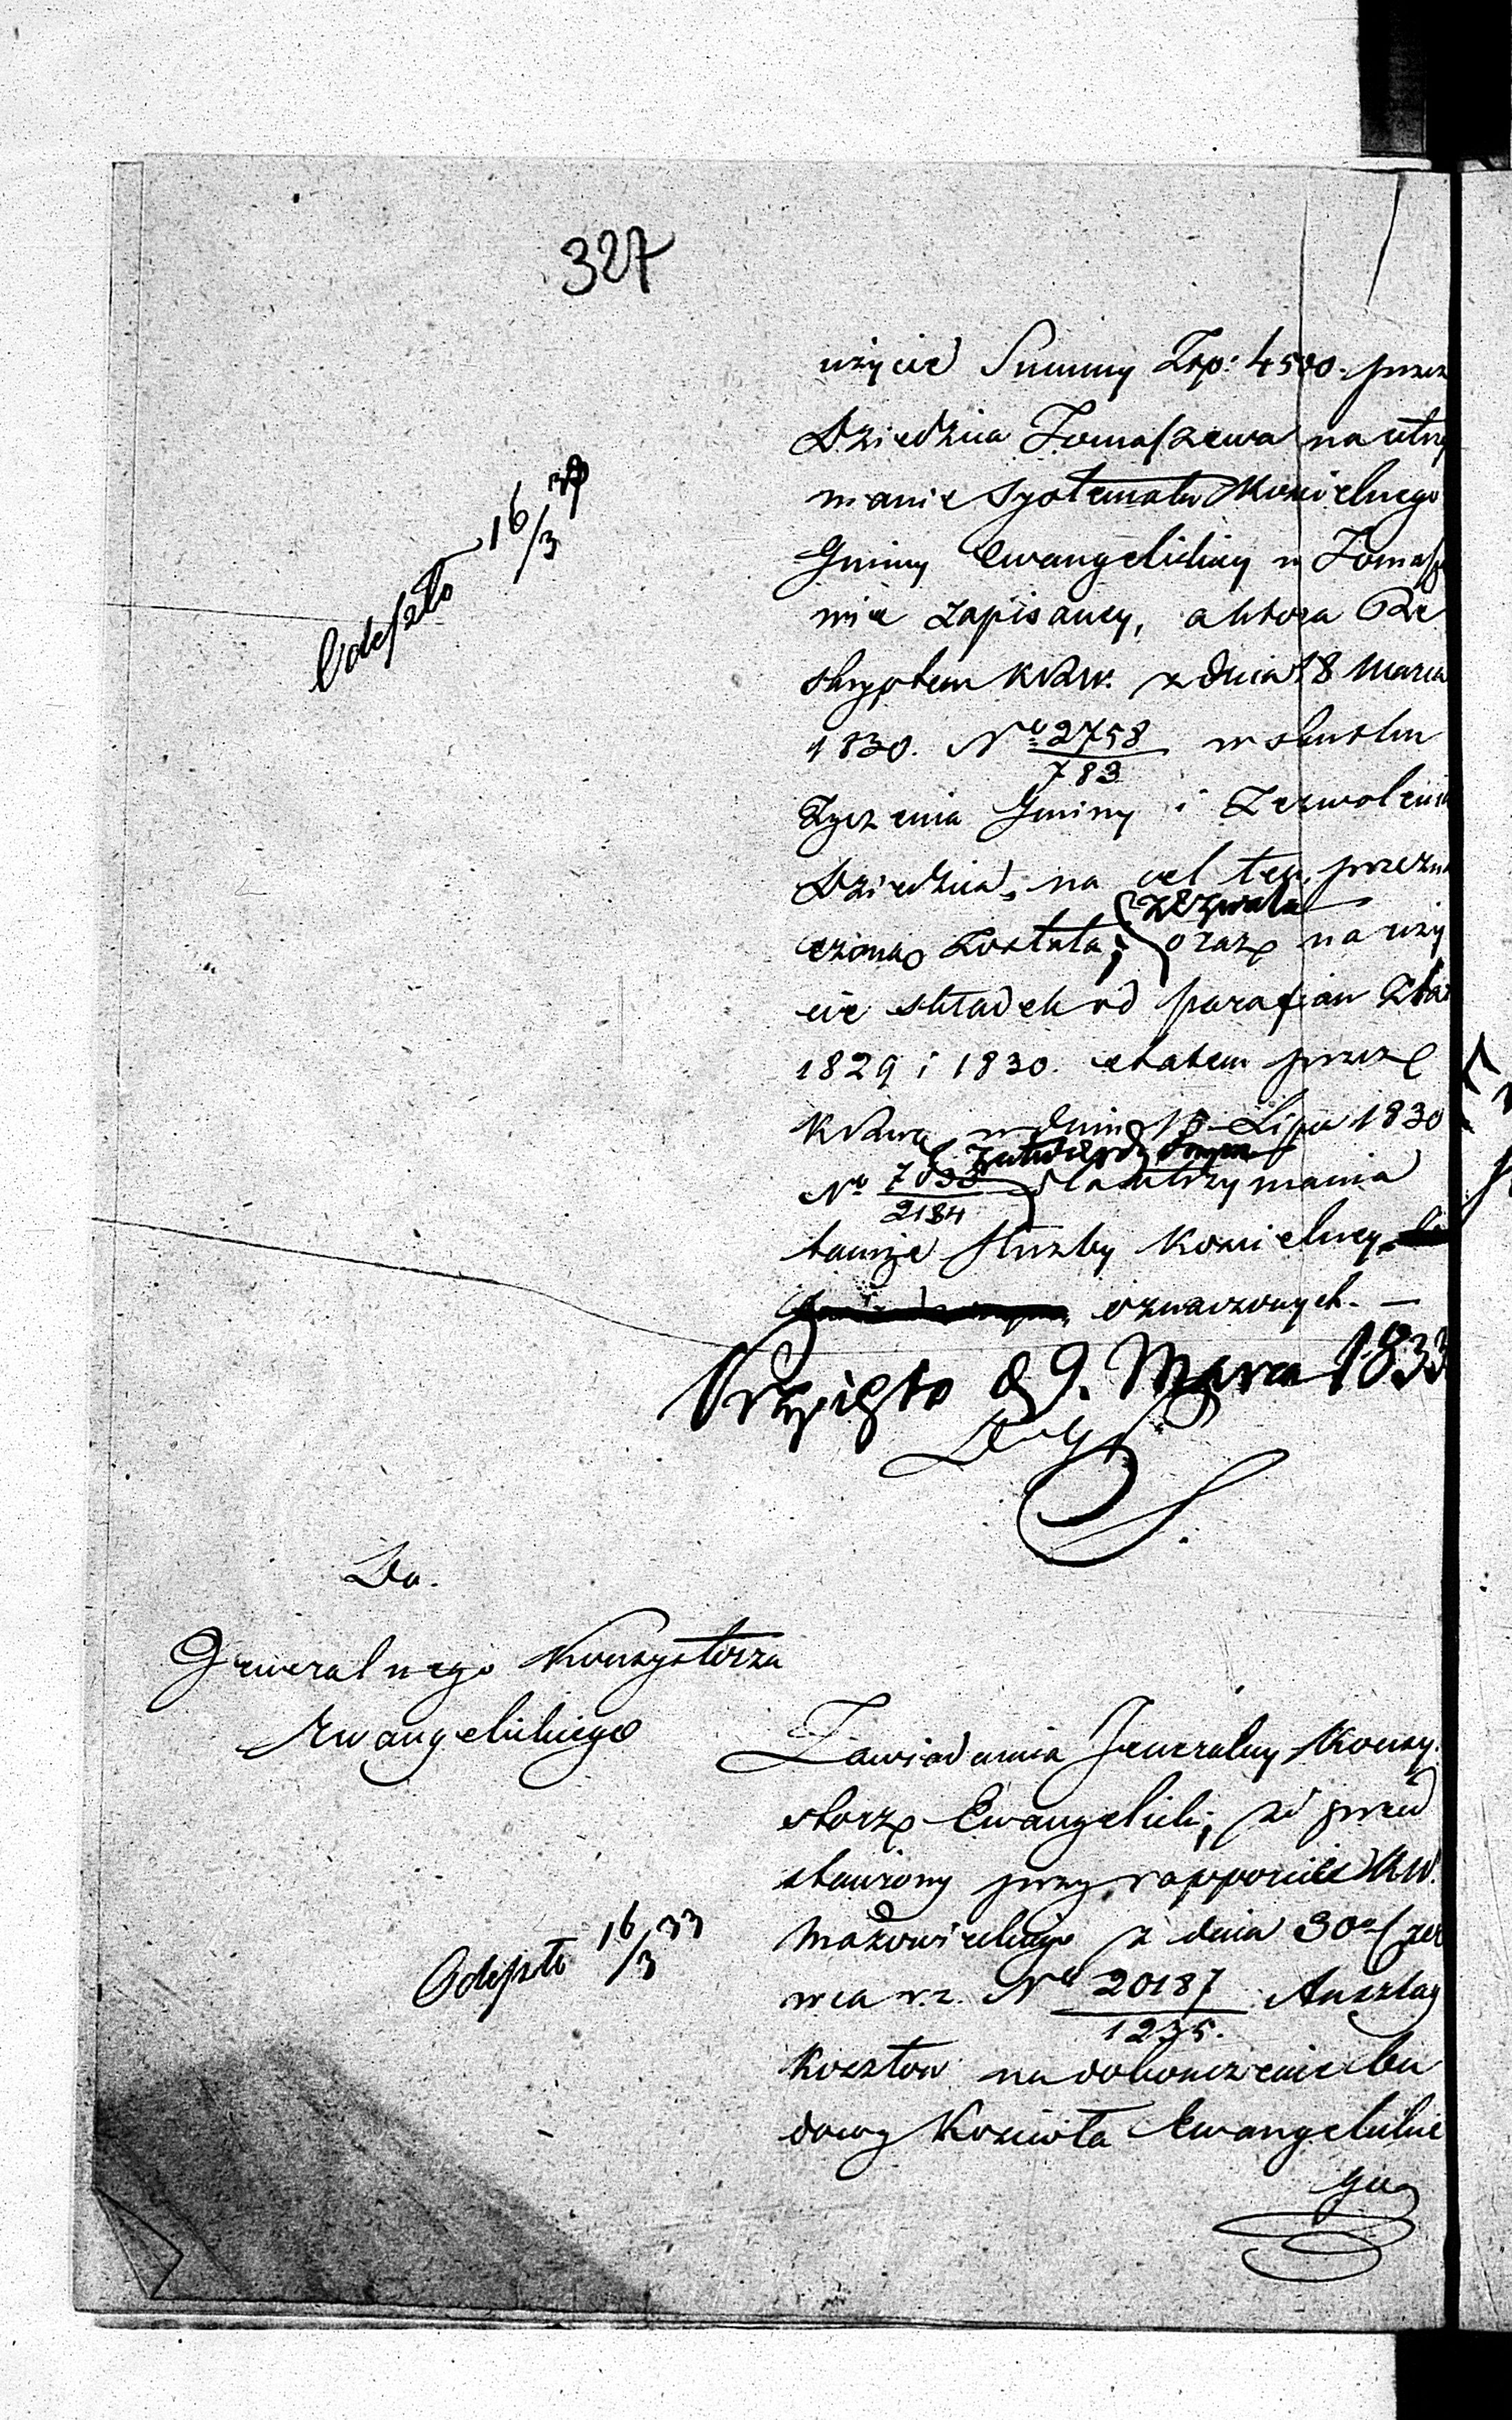 327
użycie Summy Złp: 4500. przez
Dziedzica Tomaszewa na utrzy
manie systematu Kościelnego
Gminy Ewangelickiey w Tomasze
wie zapisaney, a która Re
skryptem KRW. z dnia 18 Marca
1830. No 2758/783 w skutku
Życzenia Gminy i Zezwolenia
Dziedzica, na cel ten przezna
czoną Została; zezwala oraz na uży
cie składek od parafian z lat
1829 i 1830. etatem przez
KRW w dniu 18 Lipca 1830
No 7038/2184 zatwierdzonym dla utrzymania
tamże służby Kościelney,
oznaczonych. —
Przyięto d 9. Marca 1833
Odeszło 16/3 33
Do.
Generalnego Konsystorza
Ewangelickiego
Zawiadamia Jeneralny Konsy
storz Ewangelicki, że przed
stawiony przy rapporcie KW.
Mazowieckiego z dnia 30o Czer
wca r.z. No 20187/1235. Anszlag
Kosztów na dokończenie bu
dowy Kościoła Ewangelickie
go
Odeszło 16/3 33